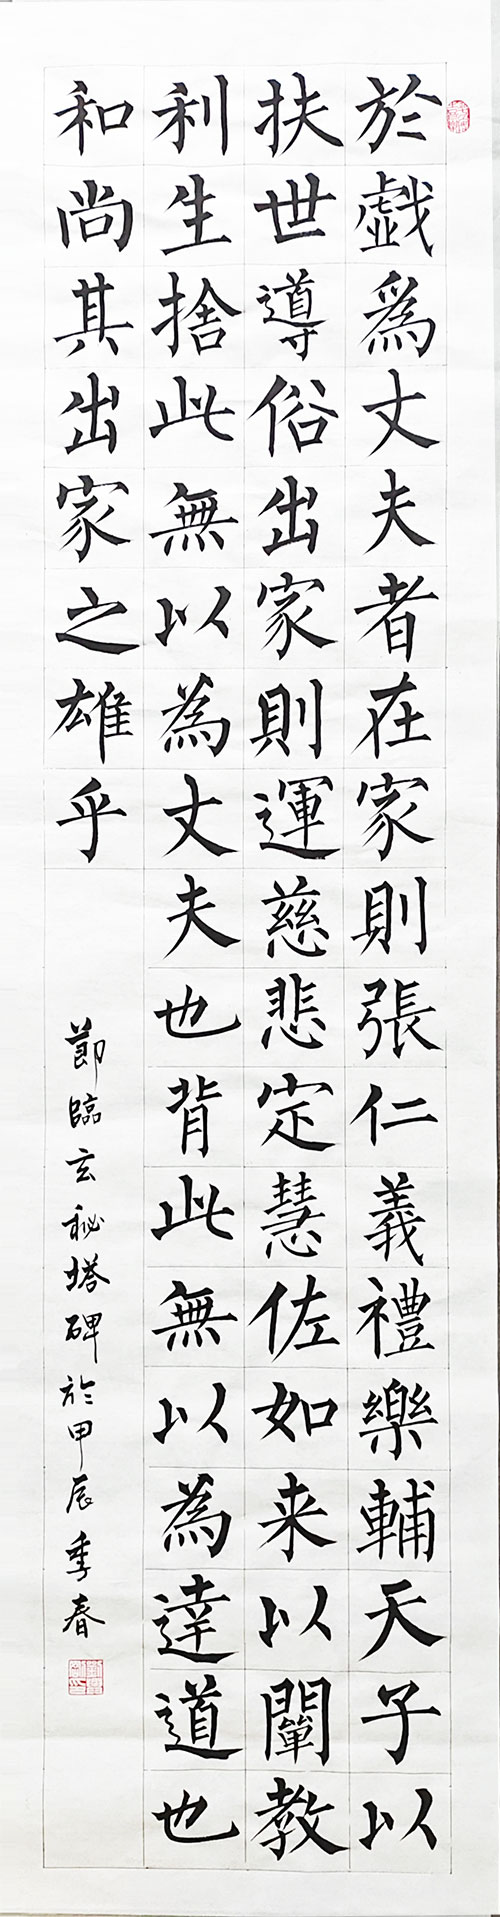 於戲爲丈夫者在家則張仁義禮樂輔天子以
扶世導俗出家則運慈悲定慧佐如来以闡教
利生捨此無以為丈夫也背此無以為達道也
和尚其出家之雄乎
節臨玄秘塔碑於甲辰季春